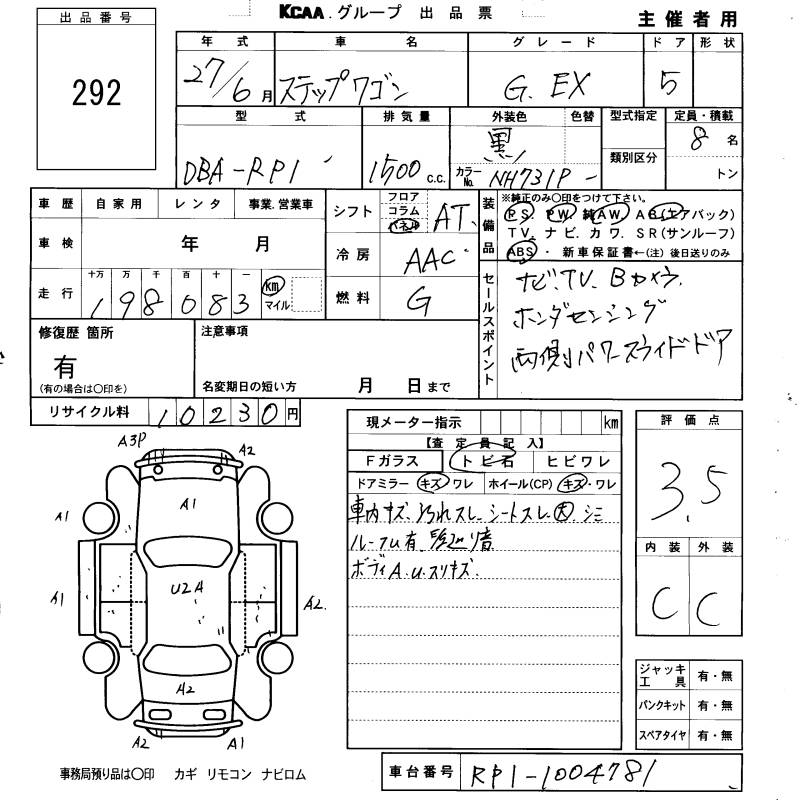 KCAA.グループ 出品票
主催者用
出品番号
292
年式 車名 グレード ドア 形状
27/6月 ステップワゴン G. EX 5
型式 排気量 外装色 色替 型式指定 定員・積載
DBA-RP1 1500 c.c. 黒 8名
カラーNo. NH731P - 類別区分 トン
車歴 自家用 レンタ 事業.営業車
シフト フロア コラム パネル AT
車検 年 月
冷房 AAC
走行 十万 万 千 百 十 一
198083 km マイル
燃料 G
装備品 ※純正のみ○印をつけて下さい。
PS PW 純AW AB(エアバック)
TV. ナビ. カワ. SR(サンルーフ)
ABS・新車保証書←(注)後日送りのみ
セールスポイント
ナビ.TV. Bカメラ.
ホンダセンシング
両側パワースライドドア
修復歴 箇所
有
(有の場合は○印を)
注意事項
名変期日の短い方 月 日まで
リサイクル料 10230円
現メーター指示 km
【査定員記入】
Fガラス トビ石 ヒビワレ
ドアミラー キズ ワレ ホイール(CP) キズ・ワレ
車内キズ. スレ シートスレ.大 シミ
ルーフム有
ボディA.U.スリキズ.
評価点
3.5
内装 外装
C C
A3P
A2
A1
A1
A1
U2A
A2.
A2
A2
A1
ジャッキ工具 有・無
パンクキット 有・無
スペアタイヤ 有・無
事務局預り品は○印 カギ リモコン ナビロム
車台番号 RP1-1004781